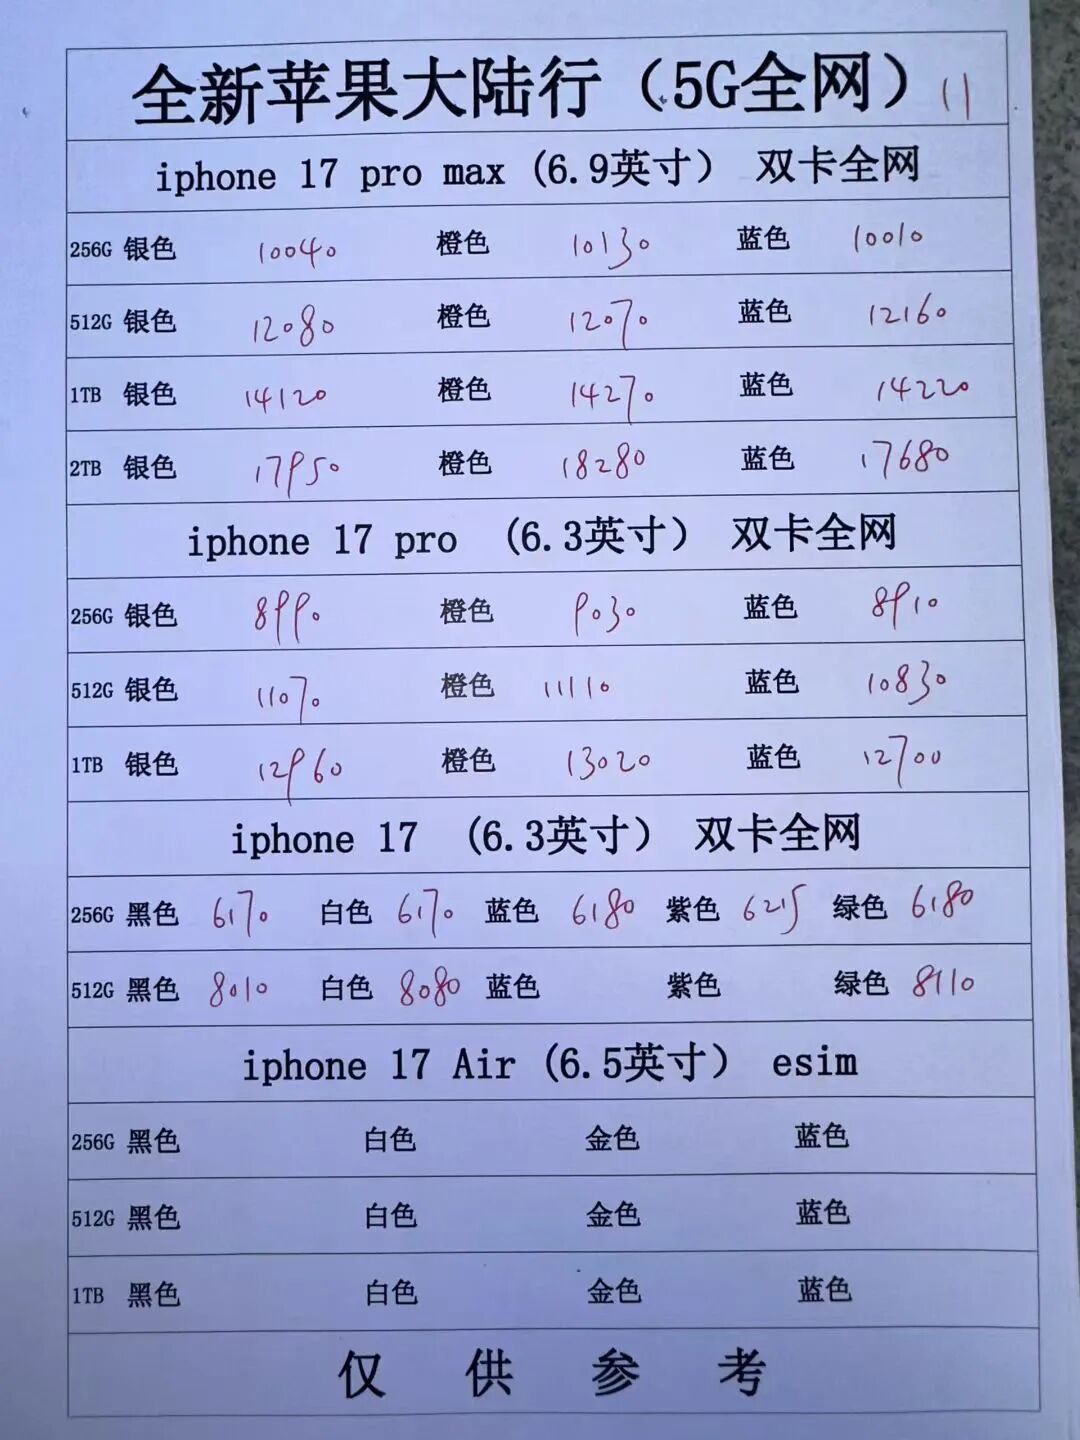 全新苹果大陆行（5G全网） 11
iphone 17 pro max (6.9英寸） 双卡全网
256G 银色 10040 橙色 10130 蓝色 10010
512G 银色 12080 橙色 12070 蓝色 12160
1TB 银色 14120 橙色 14270 蓝色 14220
2TB 银色 17950 橙色 18280 蓝色 17680
iphone 17 pro （6.3英寸） 双卡全网
256G 银色 8990 橙色 9030 蓝色 8910
512G 银色 11070 橙色 11110 蓝色 10830
1TB 银色 12960 橙色 13020 蓝色 12700
iphone 17 （6.3英寸） 双卡全网
256G 黑色 6170 白色 6170 蓝色 6180 紫色 6215 绿色 6180
512G 黑色 8010 白色 8080 蓝色 紫色 绿色 8110
iphone 17 Air (6.5英寸） esim
256G 黑色 白色 金色 蓝色
512G 黑色 白色 金色 蓝色
1TB 黑色 白色 金色 蓝色
仅供参考